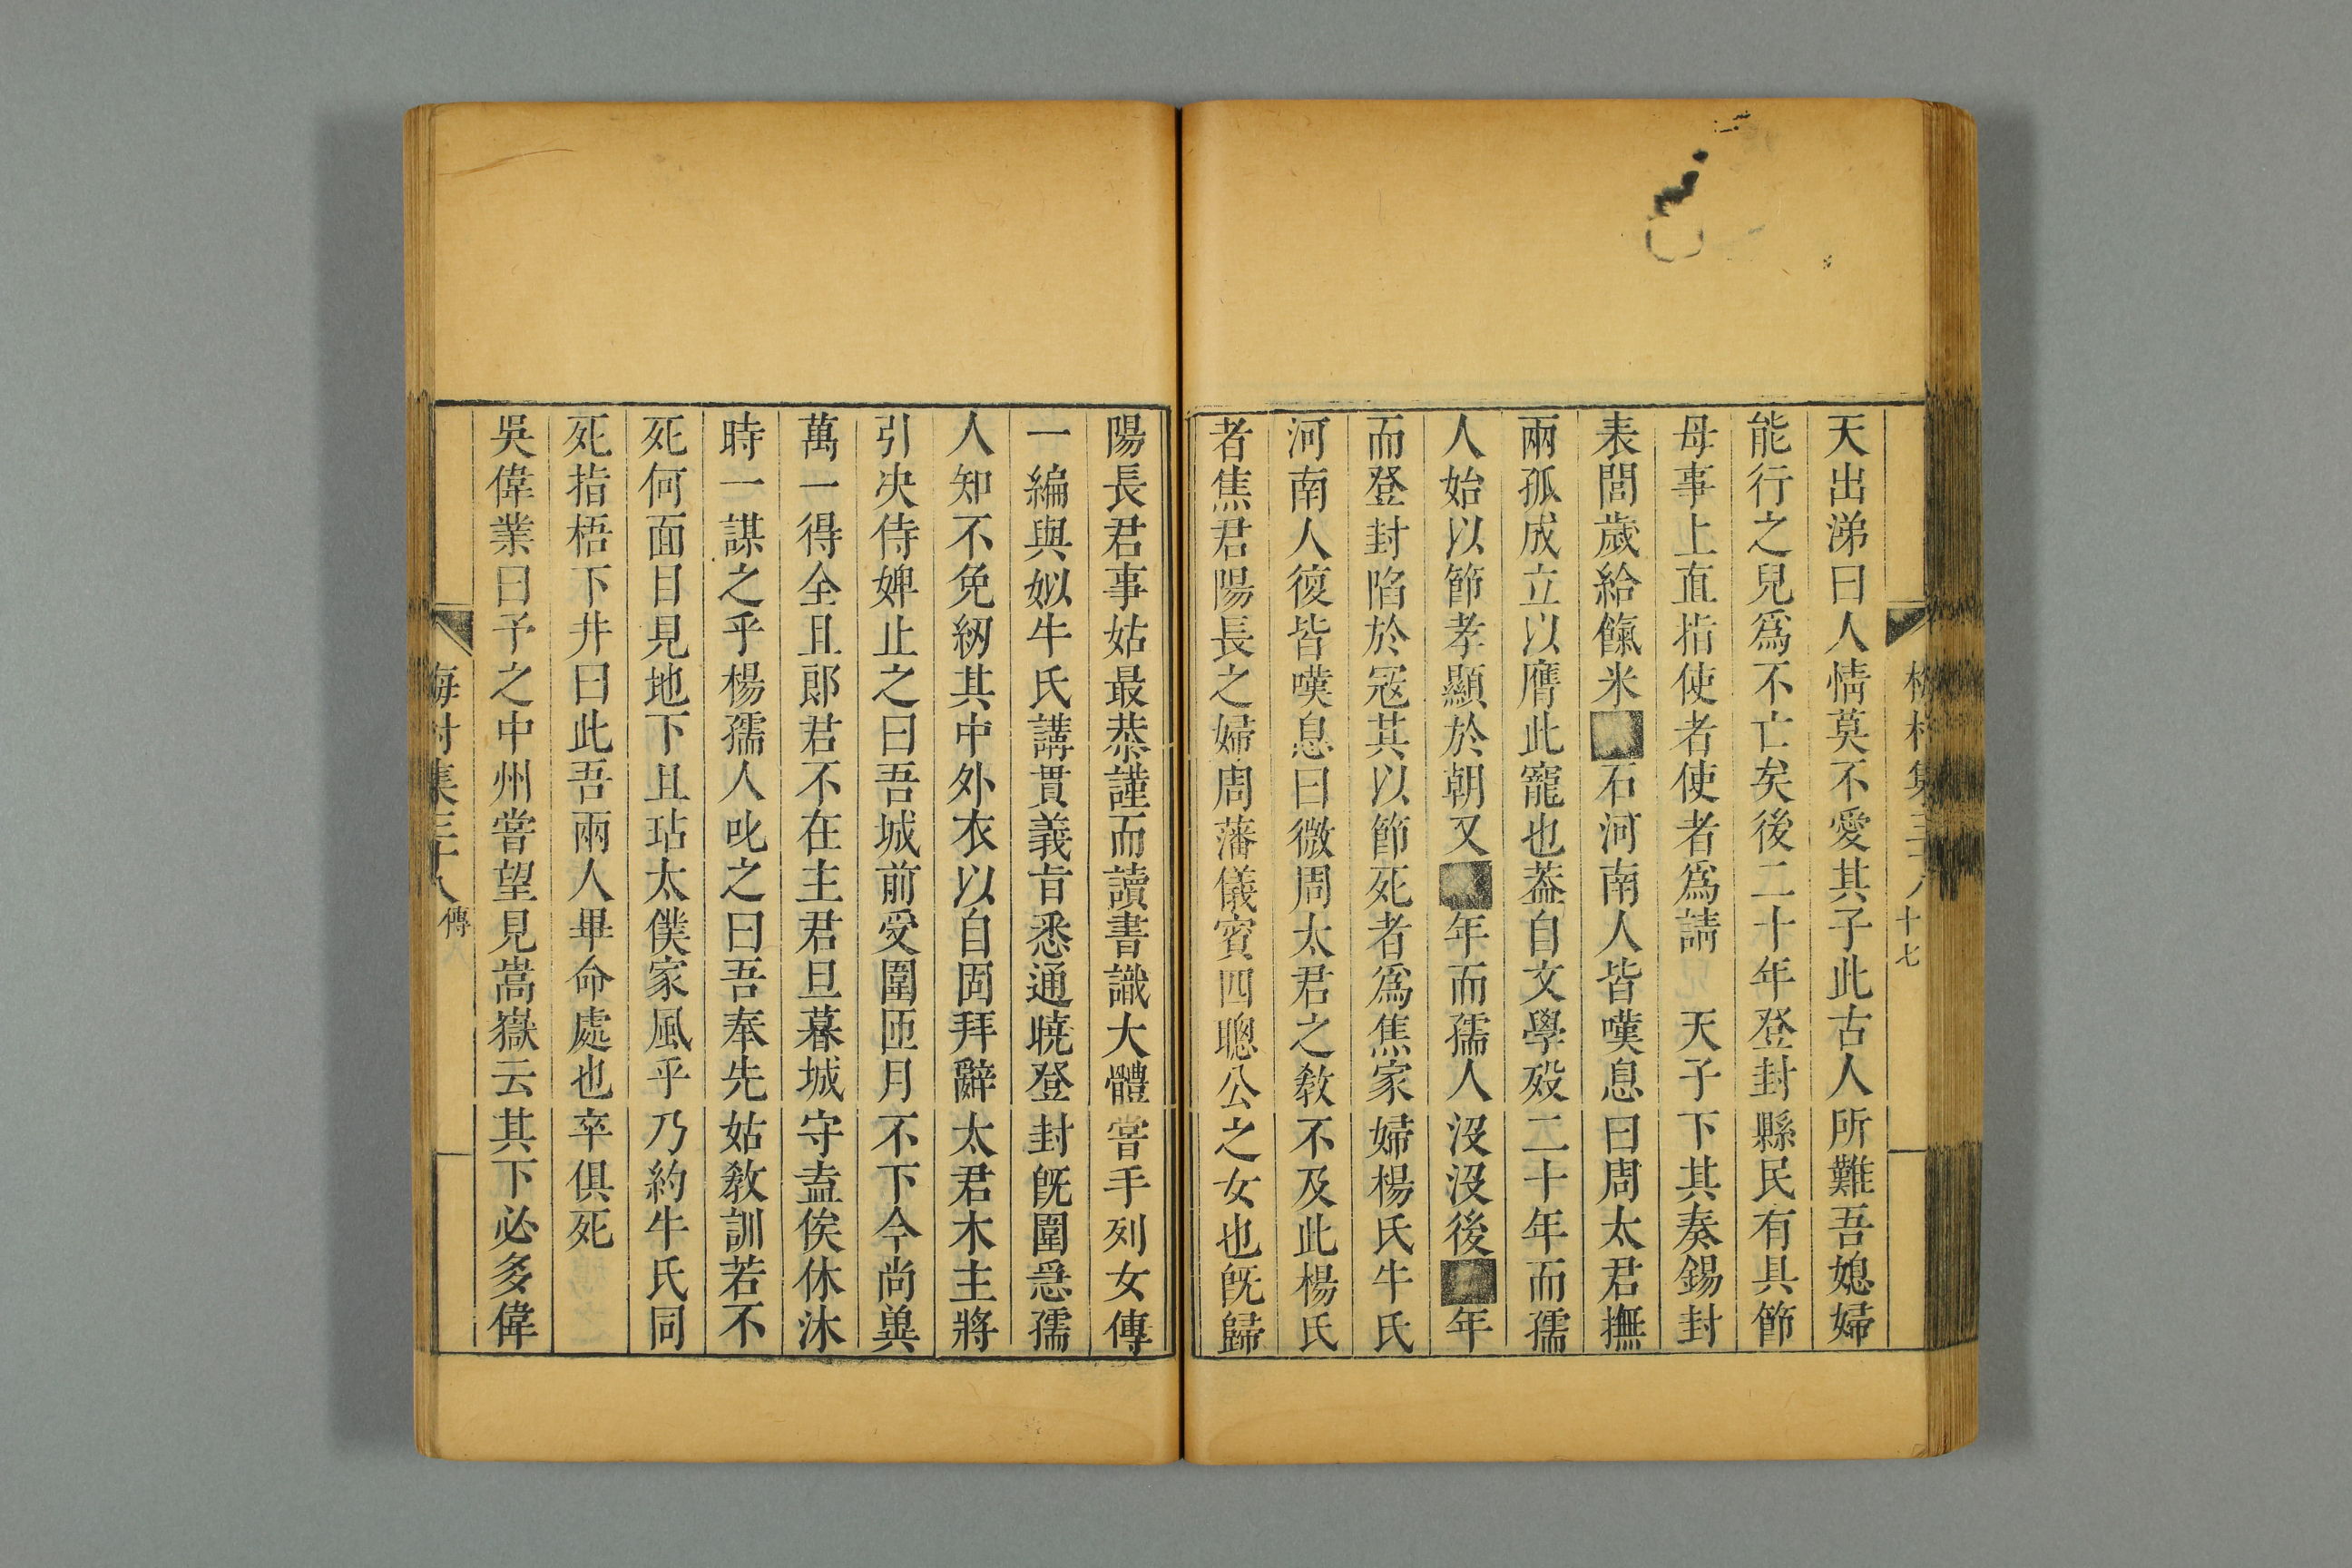 天出涕曰人情莫不愛其子此古人所難吾媳婦
能行之兒爲不亡矣後二十年登封縣民有具節
母事上直指使者使者爲請　天子下其奏錫封
表閭歲給餼米■石河南人皆嘆息曰周太君撫
兩孤成立以膺此寵也葢自文學歿二十年而孺
人始以節孝顯於朝又■年而孺人沒沒後■年
而登封陷於寇其以節死者爲焦家婦楊氏牛氏
河南人復皆嘆息曰微周太君之教不及此楊氏
者焦君陽長之婦周藩儀賓四聰公之女也旣歸
陽長君事姑最恭謹而讀書識大體甞手列女傳
一編與姒牛氏講貫義㫖悉通曉登封旣圍急孺
人知不免紉其中外衣以自固拜辭太君木主將
引决侍婢止之曰吾城前受圍匝月不下今尚兾
萬一得全且郞君不在主君旦暮城守盍俟休沐
時一謀之乎楊孺人叱之曰吾奉先姑教訓若不
死何面目見地下且玷太僕家風乎乃約牛氏同
死指梧下井曰此吾兩人畢命處也卒俱死
吳偉業曰予之中州甞望見嵩嶽云其下必多偉
梅村集三十八 傳
十七